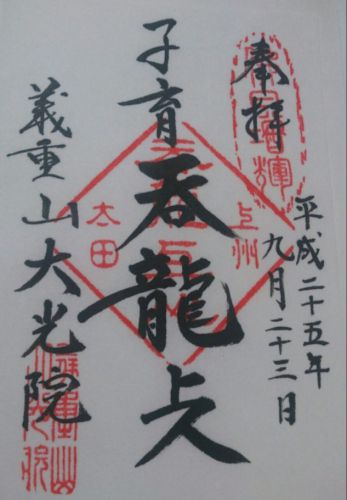 奉拝
平成二十五年
九月二十三日
子育呑龍上人
義重山大光院
上州
太田